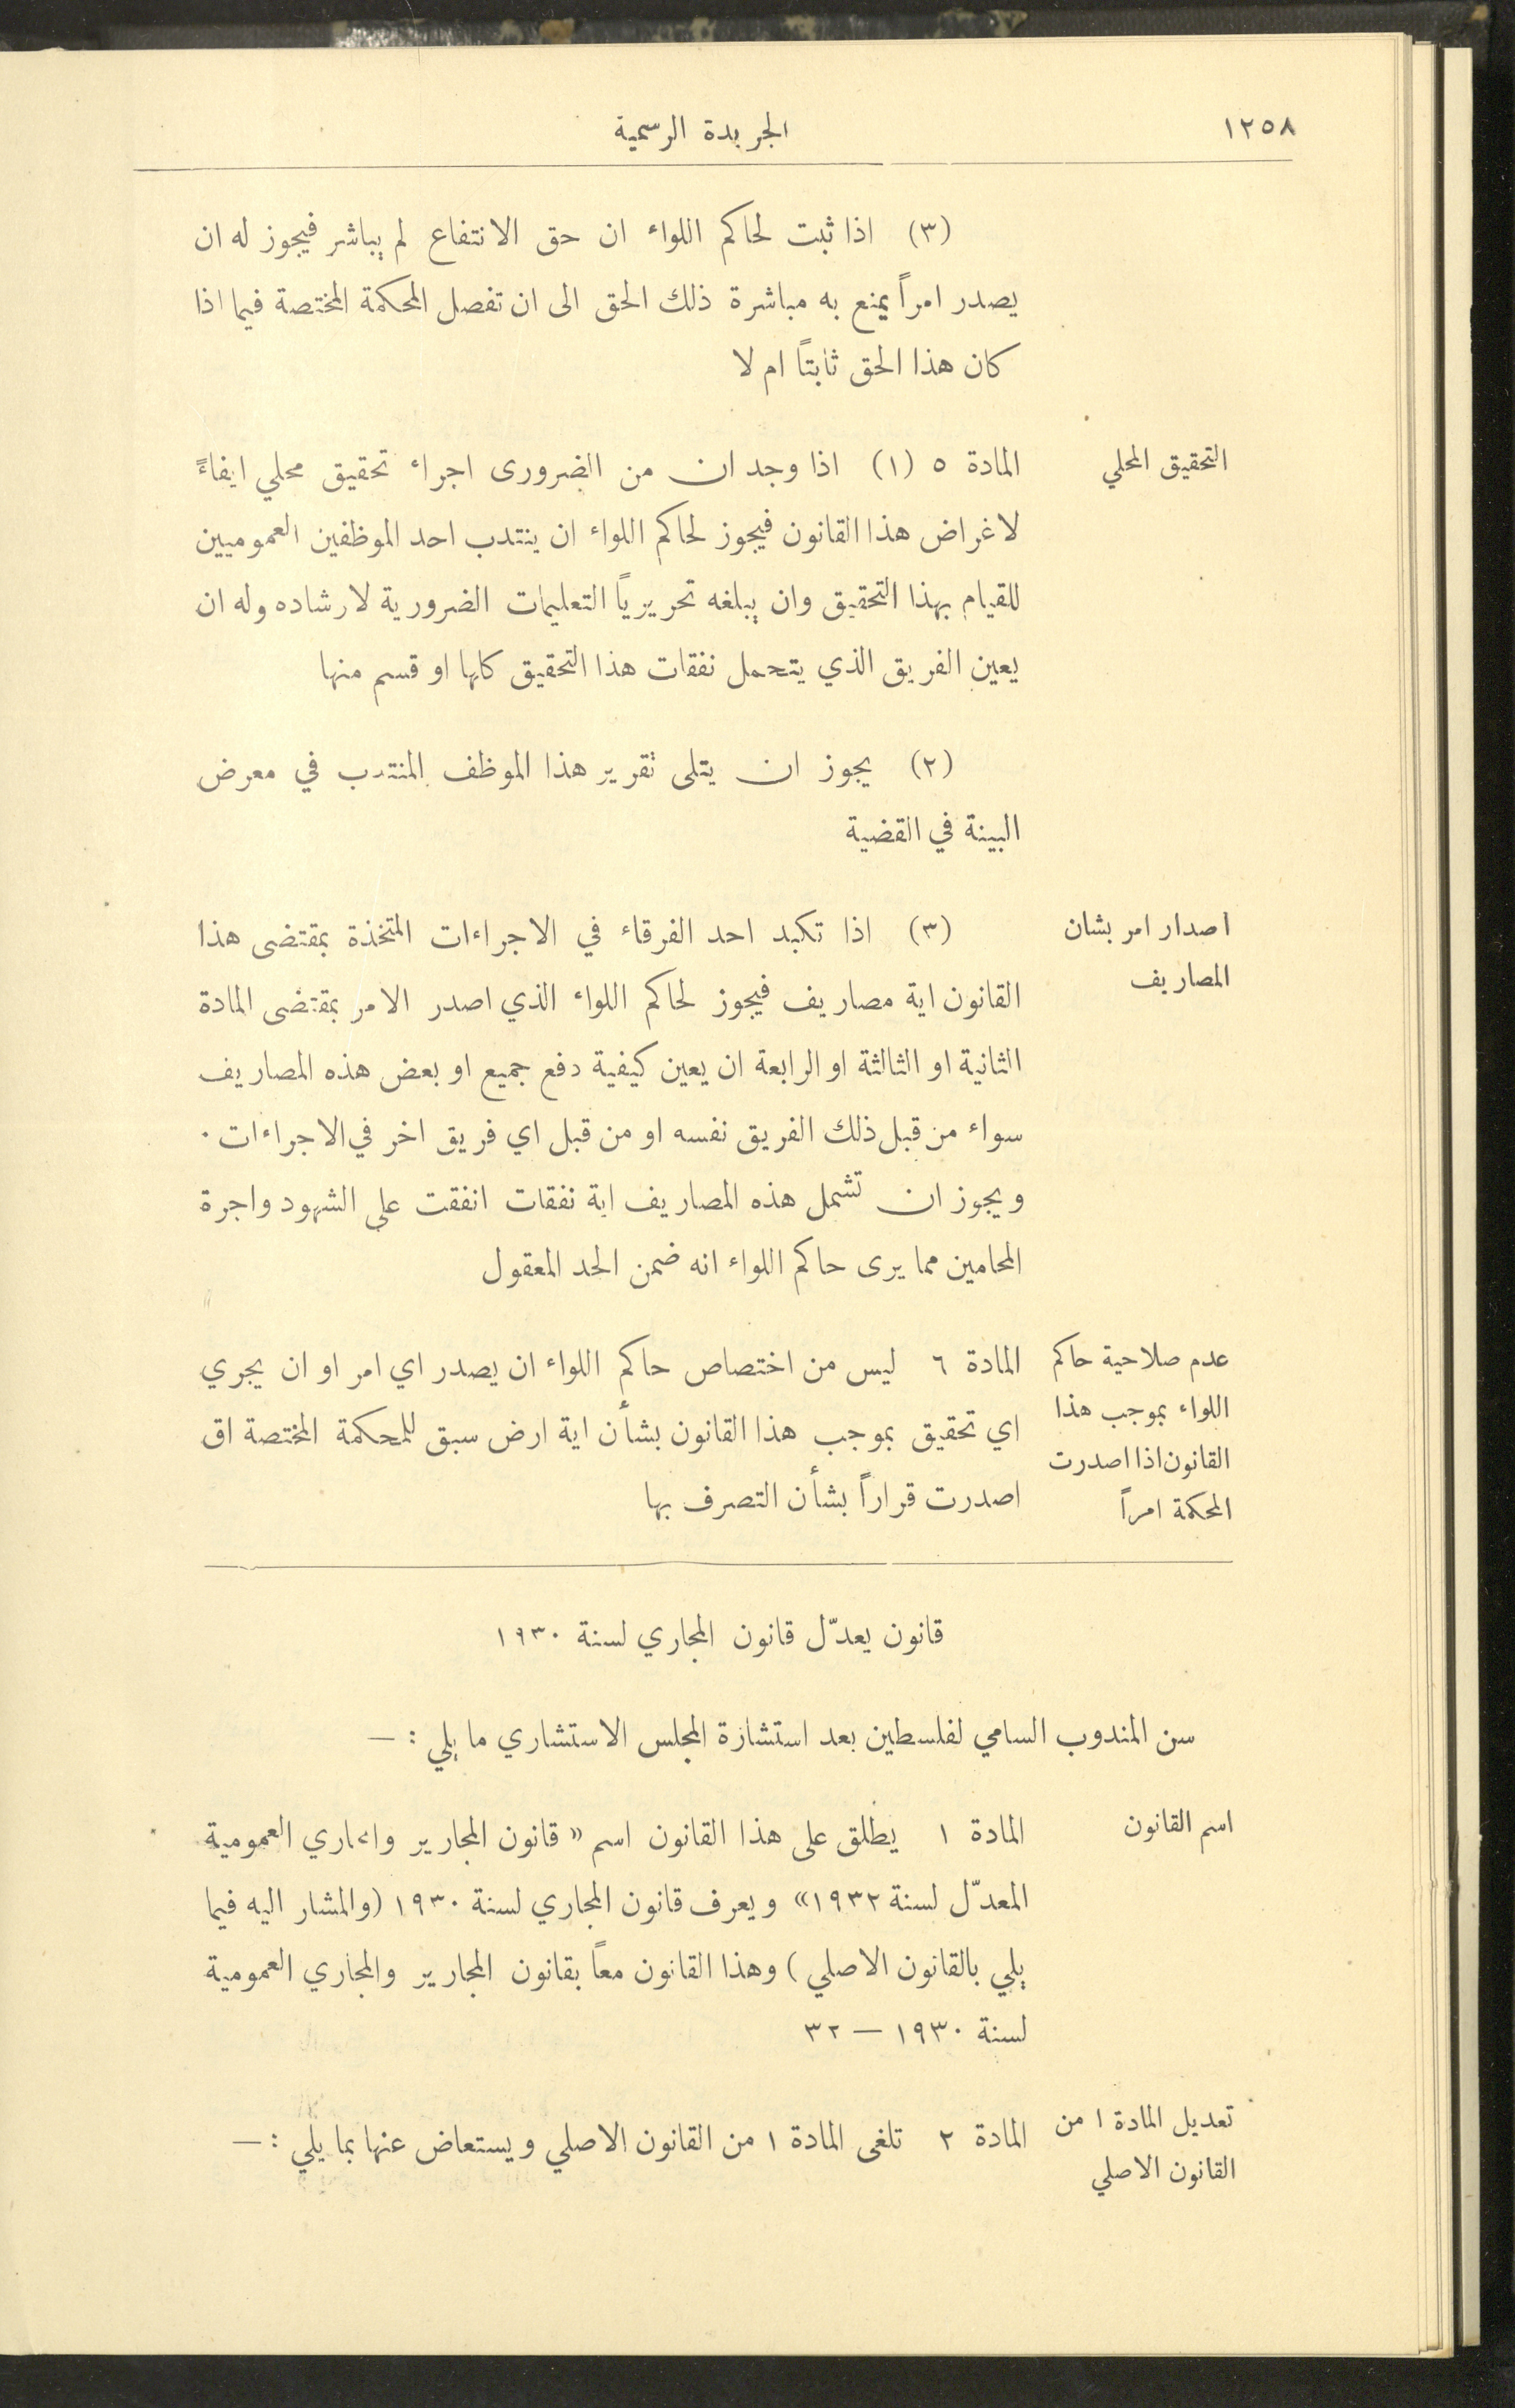 ١٢٥٨
الجريدة الرسمية
(٣) اذا ثبت لحاكم اللواء ان حق الانتفاع لم يباشر فيجوز له ان
يصدر امراً يمنع به مباشرة ذلك الحق الى ان تفصل المحكمة المختصة فيما اذا
كان هذا الحق ثابتاً ام لا
التحقيق المحلي
المادة ٥ (١) اذا وجد ان من الضرورى اجراء تحقيق محلي ايفاءً
لاغراض هذا القانون فيجوز لحاكم اللواء ان ينتدب احد الموظفين العموميين
للقيام بهذا التحقيق وان يبلغه تحريرياً التعليمات الضرورية لارشاده وله ان
يعين الفريق الذي يتحمل نفقات هذا التحقيق كلها او قسم منها
(٢) يجوز ان يتلى تقرير هذا الموظف المنتدب في معرض
البينة في القضية
اصدار امر بشان
المصاريف
(٣) اذا تكبد احد الفرقاء في الاجراءات المتخذة بمقتضى هذا
القانون اية مصاريف فيجوز لحاكم اللواء الذي اصدر الامر بمقتضى المادة
الثانية او الثالثة او الرابعة ان يعين كيفية دفع جميع او بعض هذه المصاريف
سواء من قبل ذلك الفريق نفسه او من قبل اي فريق اخر في الاجراءات ٠
ويجوز ان تشمل هذه المصاريف اية نفقات انفقت على الشهود واجرة
المحامين مما يرى حاكم اللواء انه ضمن الحد المعقول
عدم صلاحية حاكم
اللواء بموجب هذا
القانون اذا اصدرت
المحكمة امراً
المادة ٦ ليس من اختصاص حاكم اللواء ان يصدر اي امر او ان يجري
اي تحقيق بموجب هذا القانون بشأن اية ارض سبق للمحكمة المختصة اق
اصدرت قراراً بشأن التصرف بها
قانون يعدّل قانون المجاري لسنة ١٩٣٠
سن المندوب السامي لفلسطين بعد استشارة المجلس الاستشاري ما يلي : —
اسم القانون
المادة ١ يطلق على هذا القانون اسم « قانون المجارير والمجاري العمومية
المعدّل لسنة ١٩٣٢» ويعرف قانون المجاري لسنة ١٩٣٠ (والمشار اليه فيما
يلي بالقانون الاصلي ) وهذا القانون معاً بقانون المجارير والمجاري العمومية
لسنة ١٩٣٠ — ٣٢
تعديل المادة ١ من
القانون الاصلي
المادة ٢ تلغى المادة ١ من القانون الاصلي ويستعاض عنها بما يلي : —